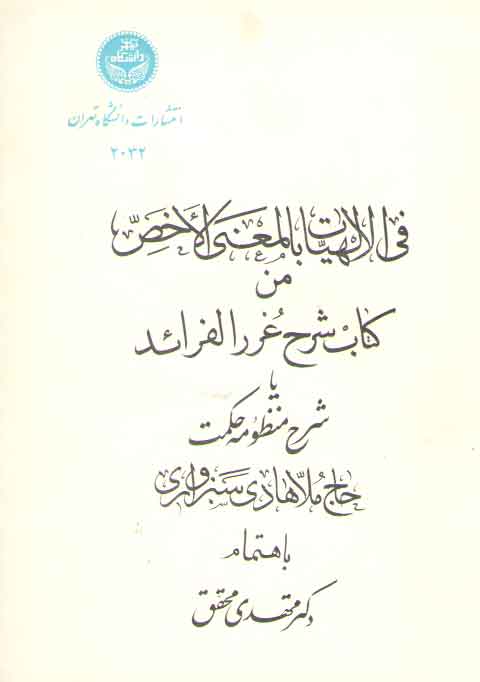 دانشگاه تهران
انتشارات دانشگاه تهران
۲۰۳۲
فی الالهیّات بالمعنی الأخصّ
من
کتاب شرح غُرر الفرائد
یا
شرح منظومه حکمت
حاج مُلّا هادی سبزواری
باهتمام
دکتر مهدی محقق